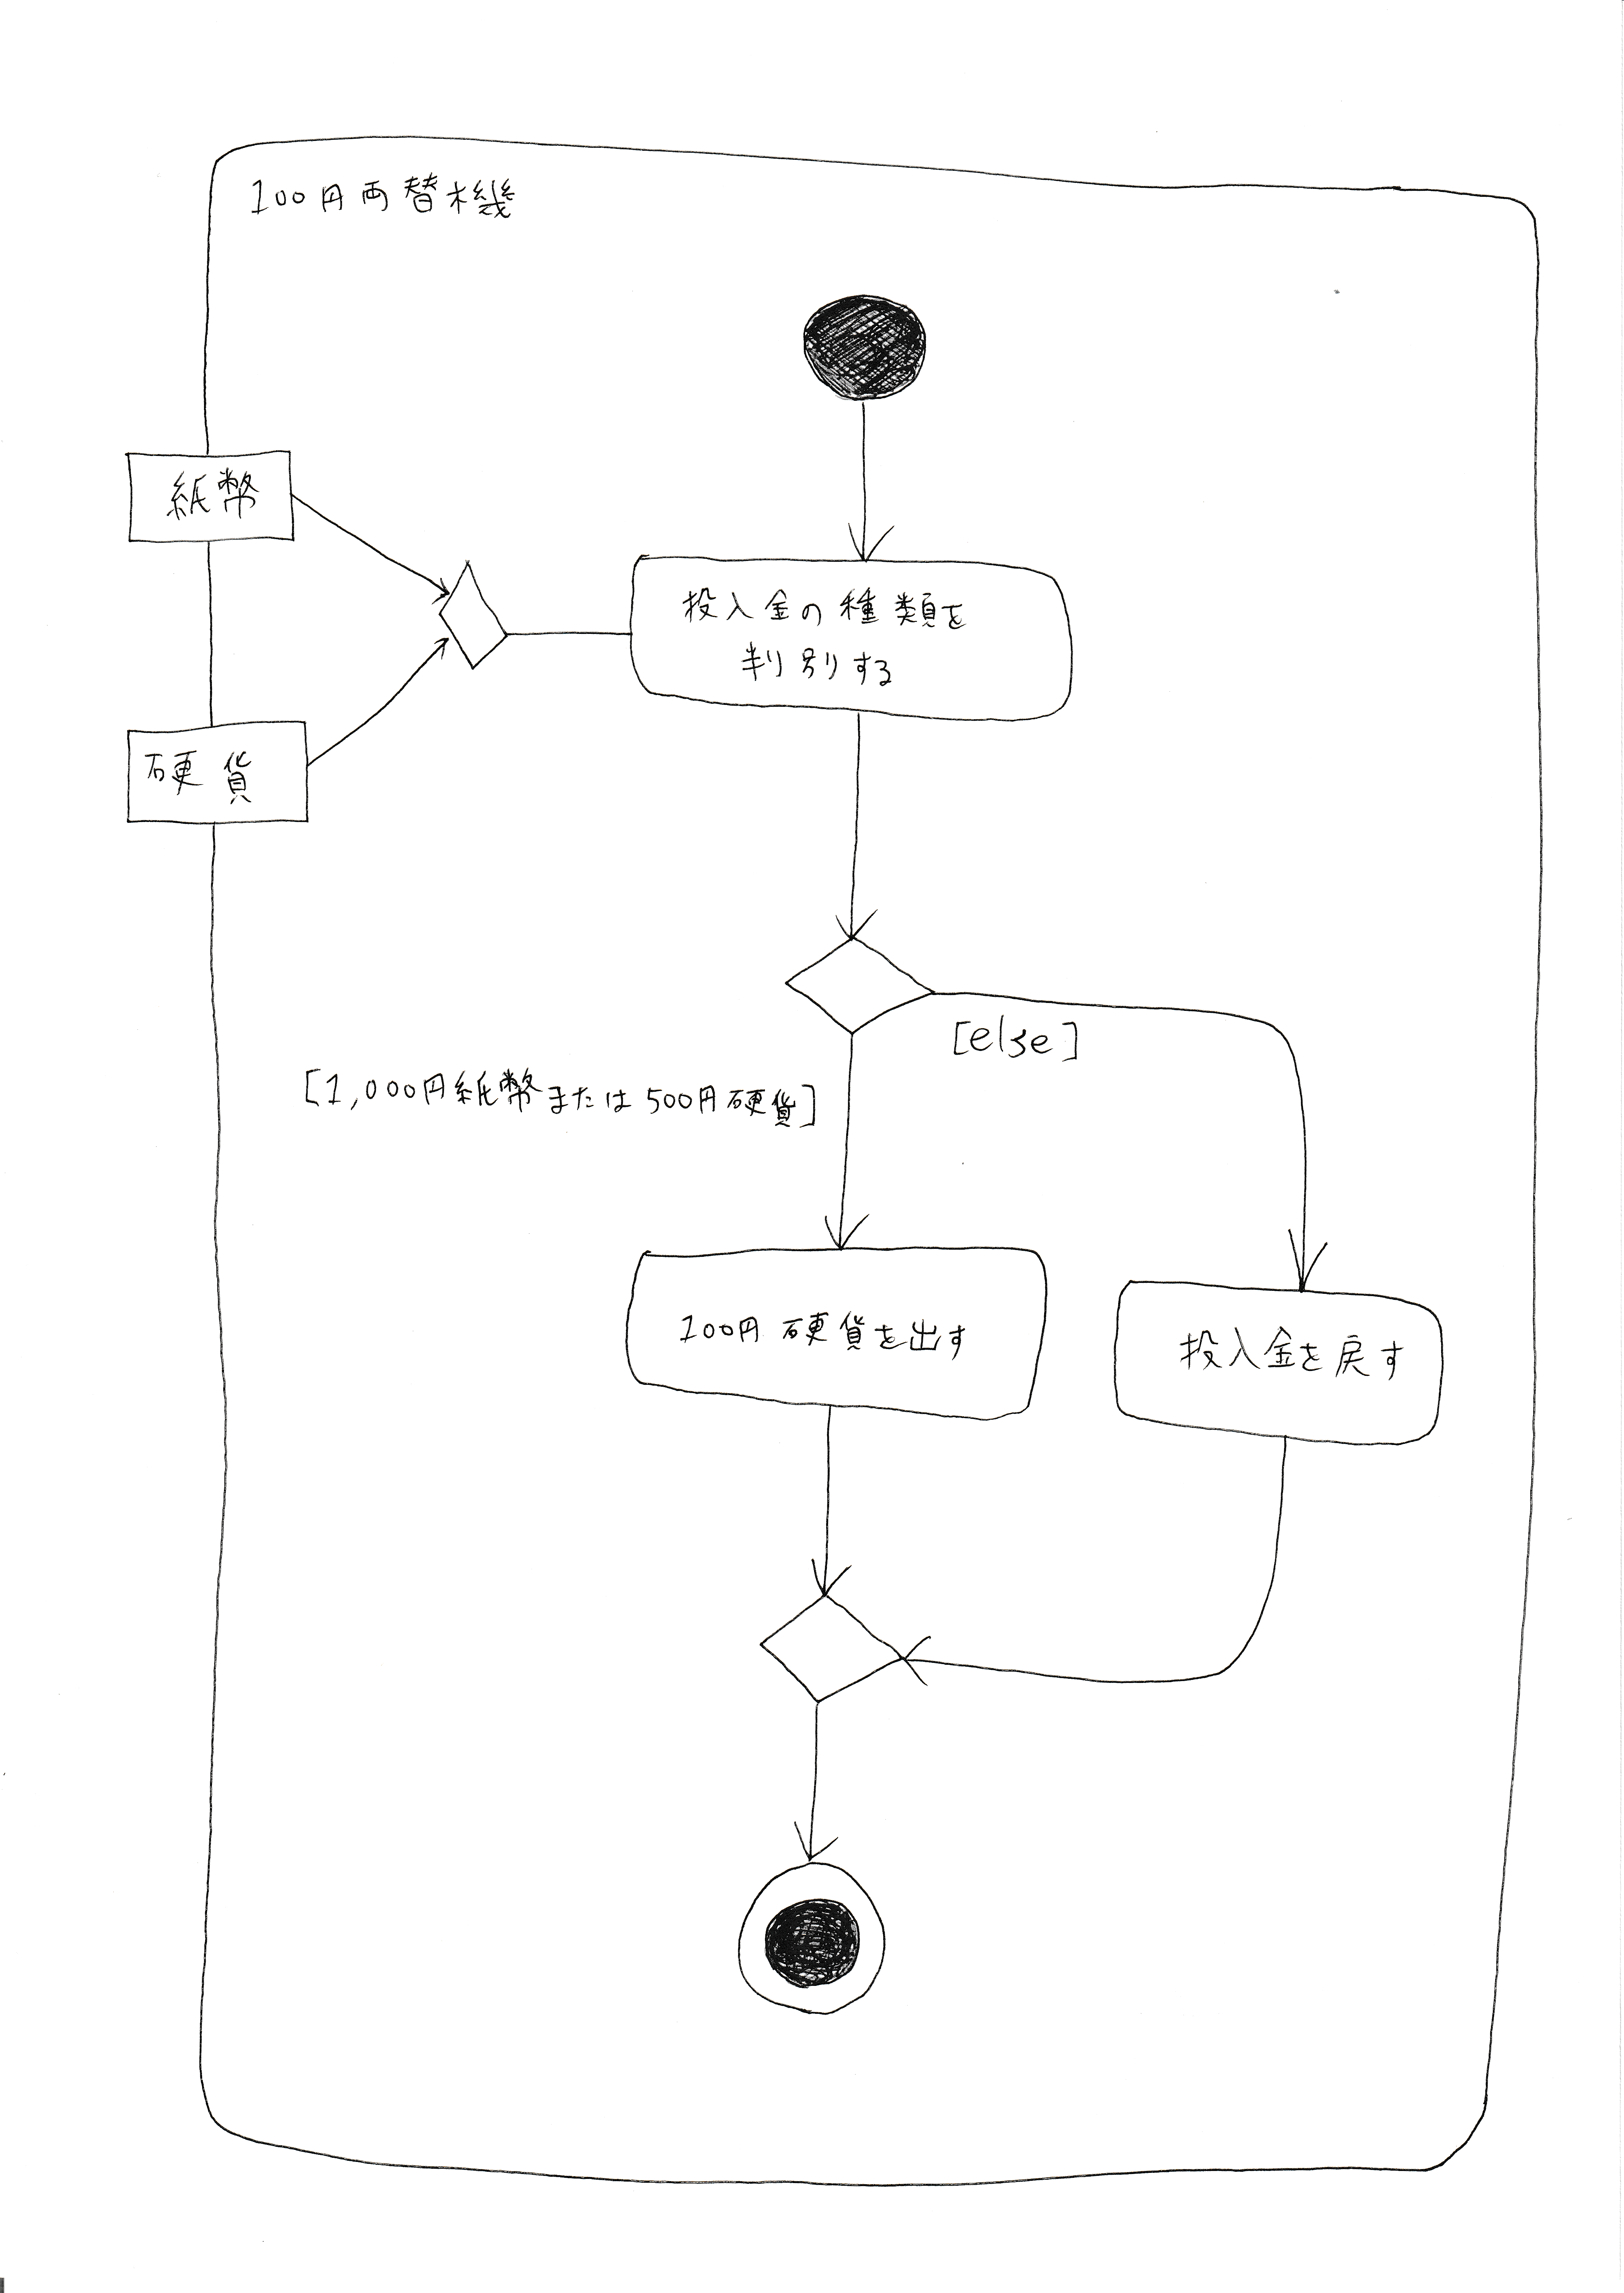 100円両替機
紙幣
投入金の種類を
判別する
硬貨
[else]
[1,000円紙幣または500円硬貨]
100円硬貨を出す
投入金を戻す